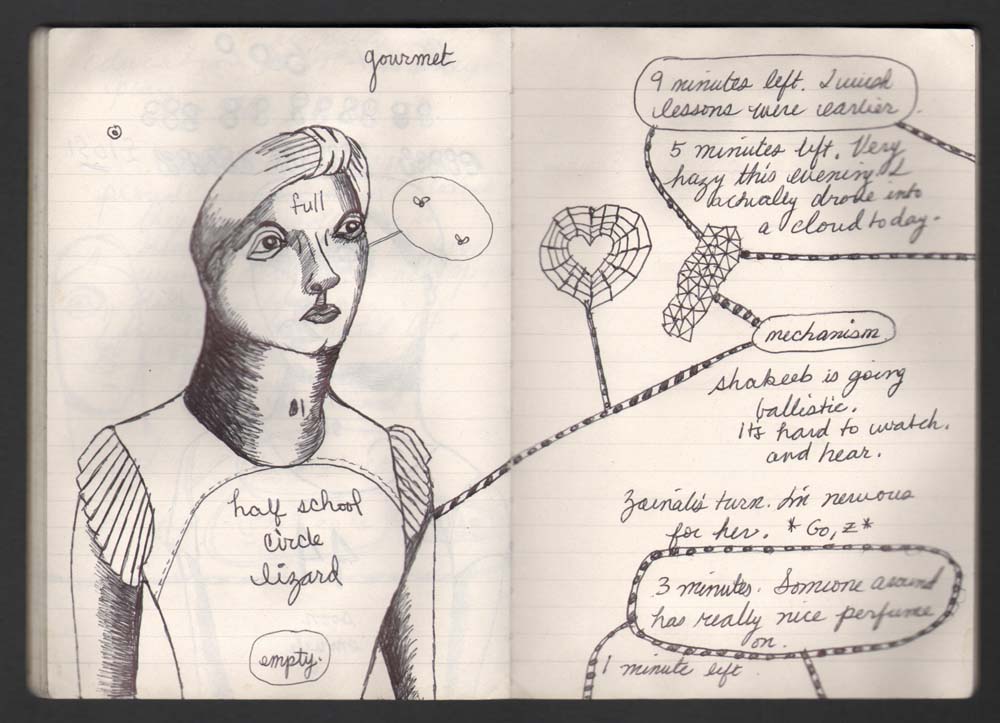 gourmet
full
half school
circle
lizard
empty.
9 minutes left. I wish
lessons were earlier.
5 minutes left. Very
hazy this evening. I
actually drove into
a cloud today.
mechanism
Shakeeb is going
ballistic.
Its hard to watch.
and hear.
Zainab's turn. Im nervous
for her. *Go, Z*
3 minutes. Someone around
has really nice perfume
on.
1 minute left